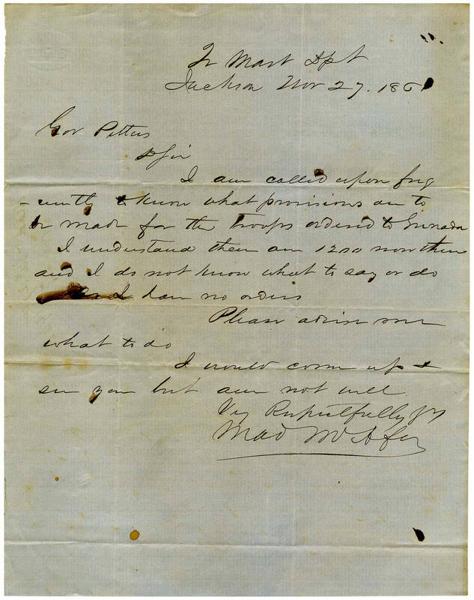 Qr Mast Dpt
Jackson Nov 27. 1861
Gov Pettus
Sir
I am called upon freq
-uently to know what provisions are to
be made for the troops ordered to Grenada
I understand there are 1200 now there
and I do not know what to say or do
I have no orders
Please advise me
what to do
I would come up &
see you but am not well
Vy Respectfully yrs
Mad McAfee